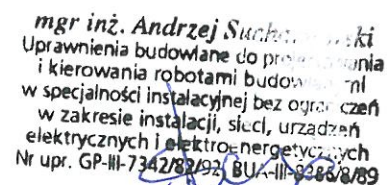 mgr inż. Andrzej
Uprawnienia budowlane do
i kierowania robotami
w specjalności instalacyjnej bez
w zakresie instalacji, sieci, urządzeń
elektrycznych i elektroenergetycznych
Nr upr. GP-III-7342/82/92,